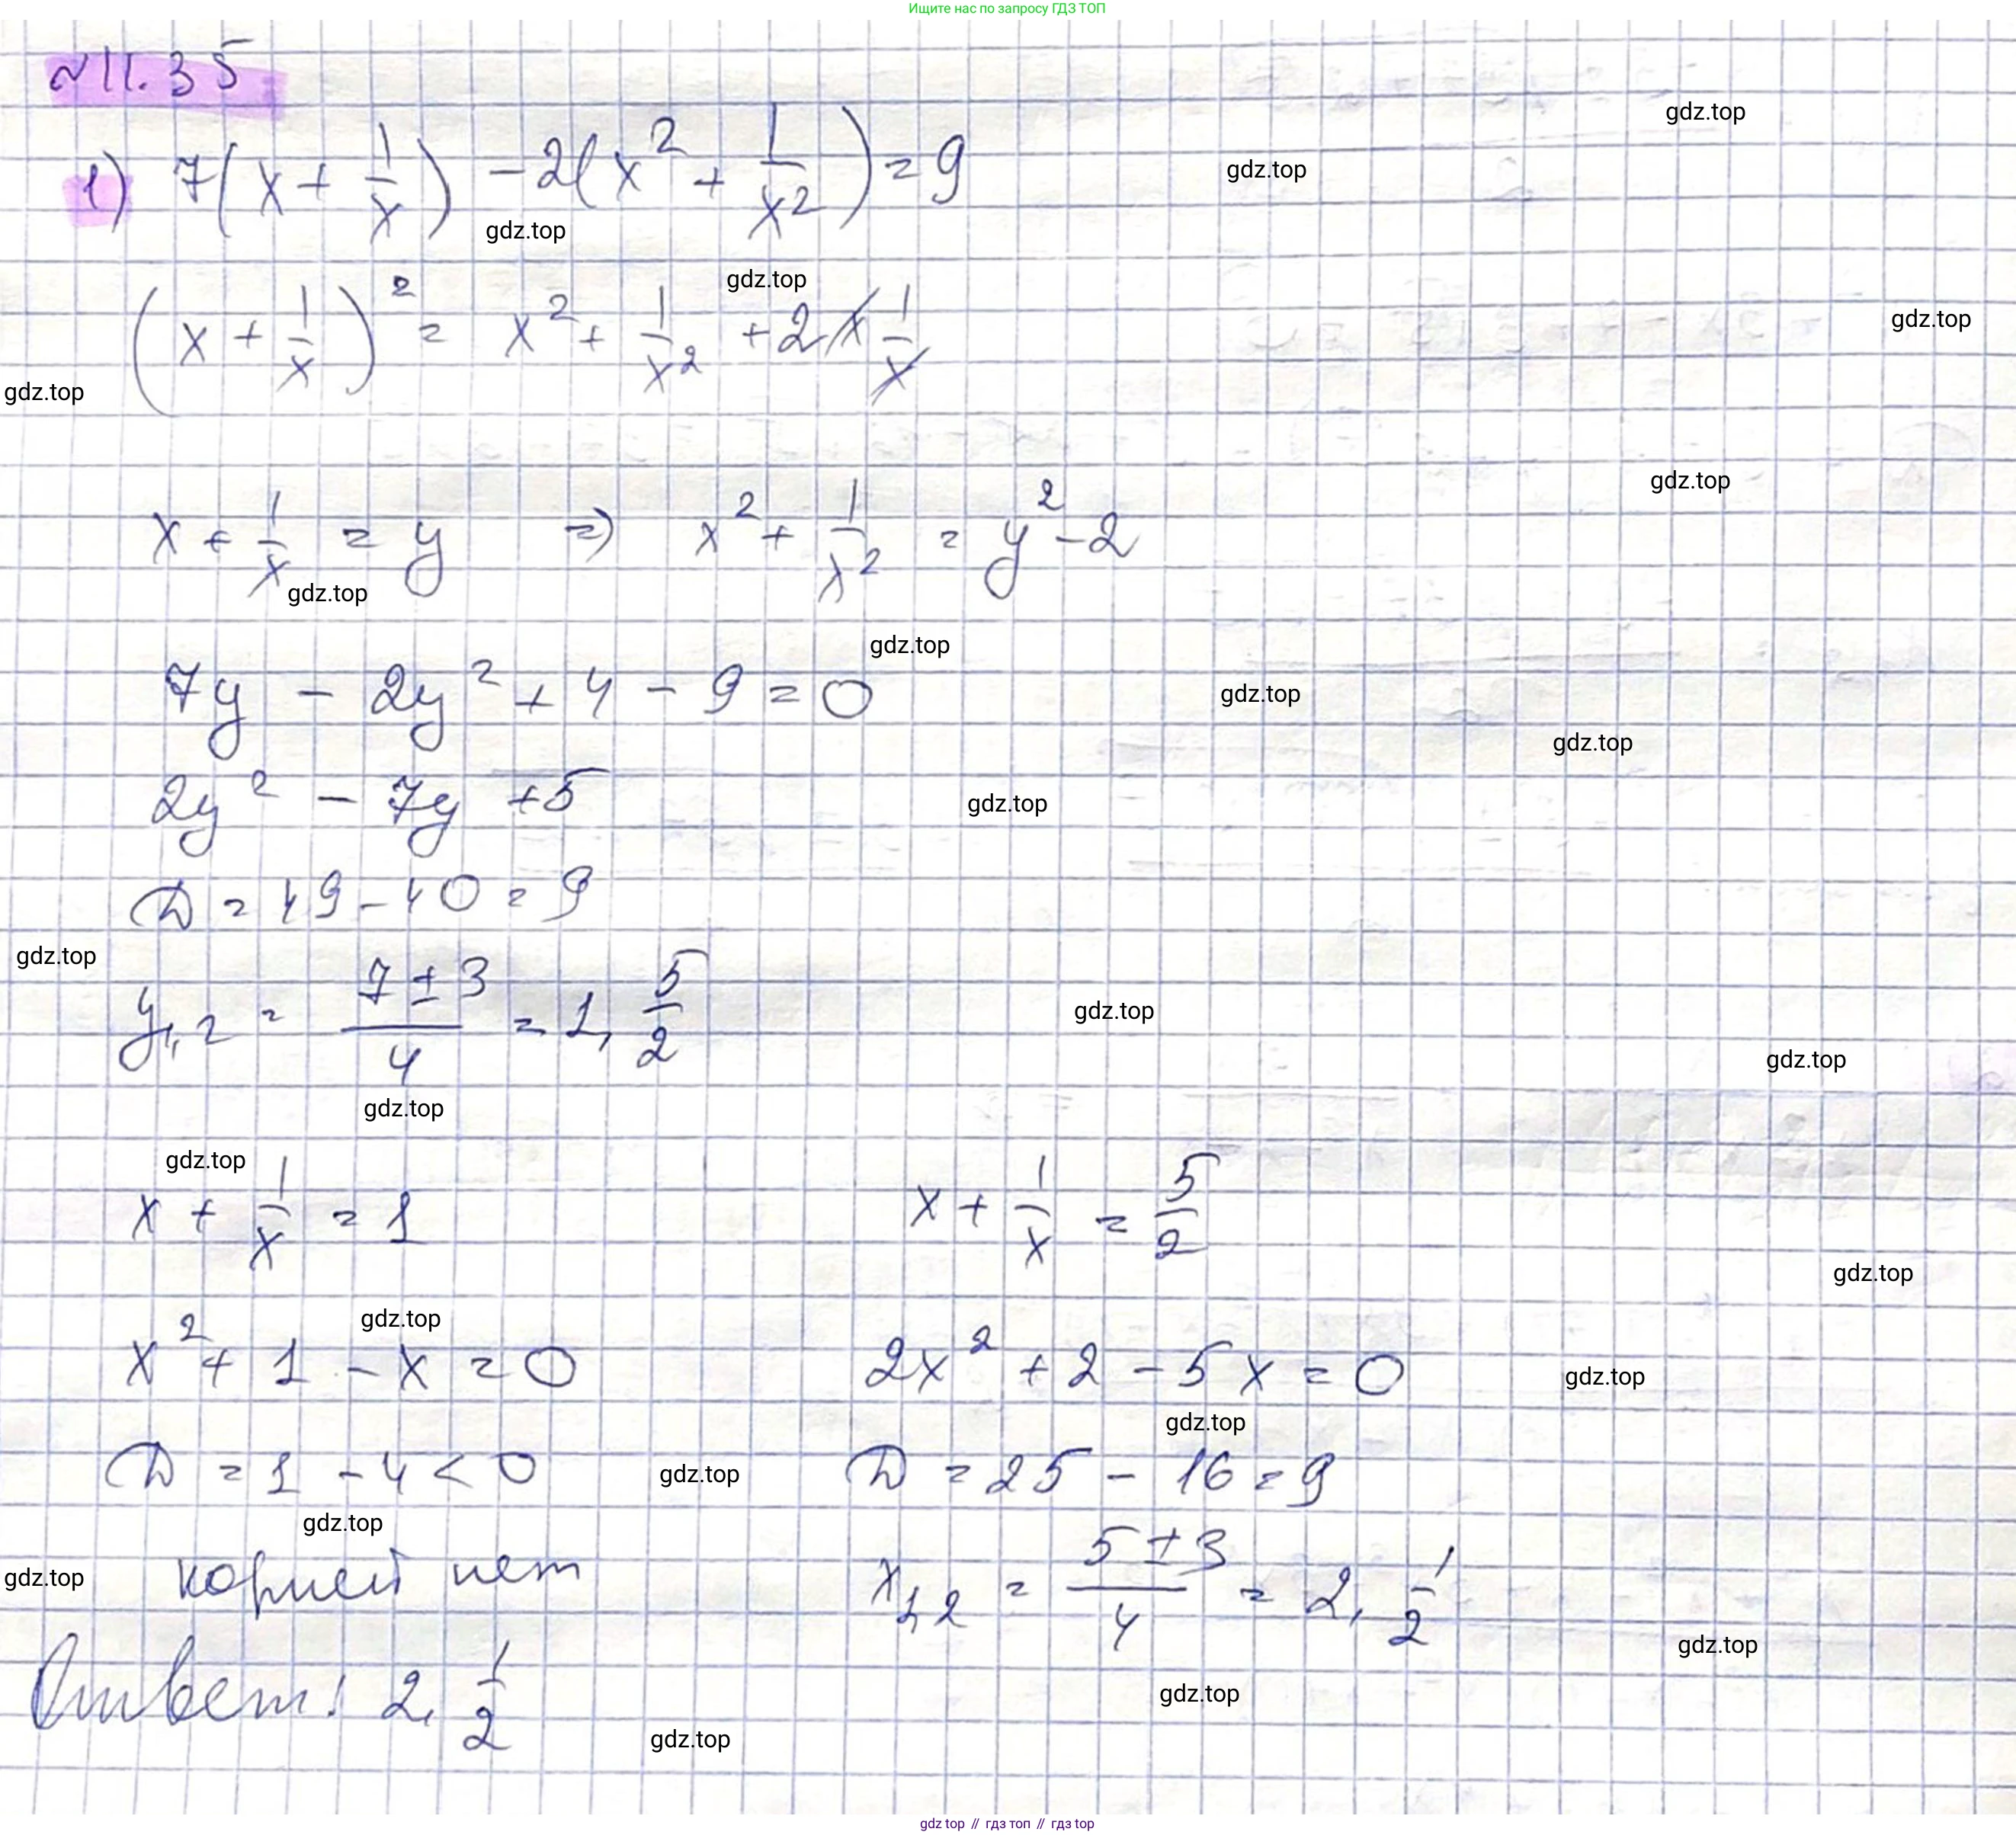 Ищите нас по запросу ГДЗ ТОП
№11.35
gdz.top
1) 7(x + 1/x) - 2(x² + 1/x²) = 9
gdz.top
gdz.top
gdz.top
(x + 1/x)² = x² + 1/x² + 2x 1/x
gdz.top
gdz.top
gdz.top
x + 1/x = y => x² + 1/x² = y² - 2
gdz.top
gdz.top
7y - 2y² + 4 - 9 = 0
gdz.top
gdz.top
2y² - 7y + 5
gdz.top
D = 49 - 40 = 9
gdz.top
y1,2 = (7 ± 3)/4 = 1, 5/2
gdz.top
gdz.top
gdz.top
gdz.top
x + 1/x = 1 x + 1/x = 5/2
gdz.top
gdz.top
x² + 1 - x = 0 2x² + 2 - 5x = 0
gdz.top
gdz.top
D = 1 - 4 < 0 D = 25 - 16 = 9
gdz.top
gdz.top
gdz.top
корней нет x1,2 = (5 ± 3)/4 = 2, 1/2
gdz.top
Ответ: 2, 1/2
gdz.top
gdz.top
gdz top // гдз топ // гдз top